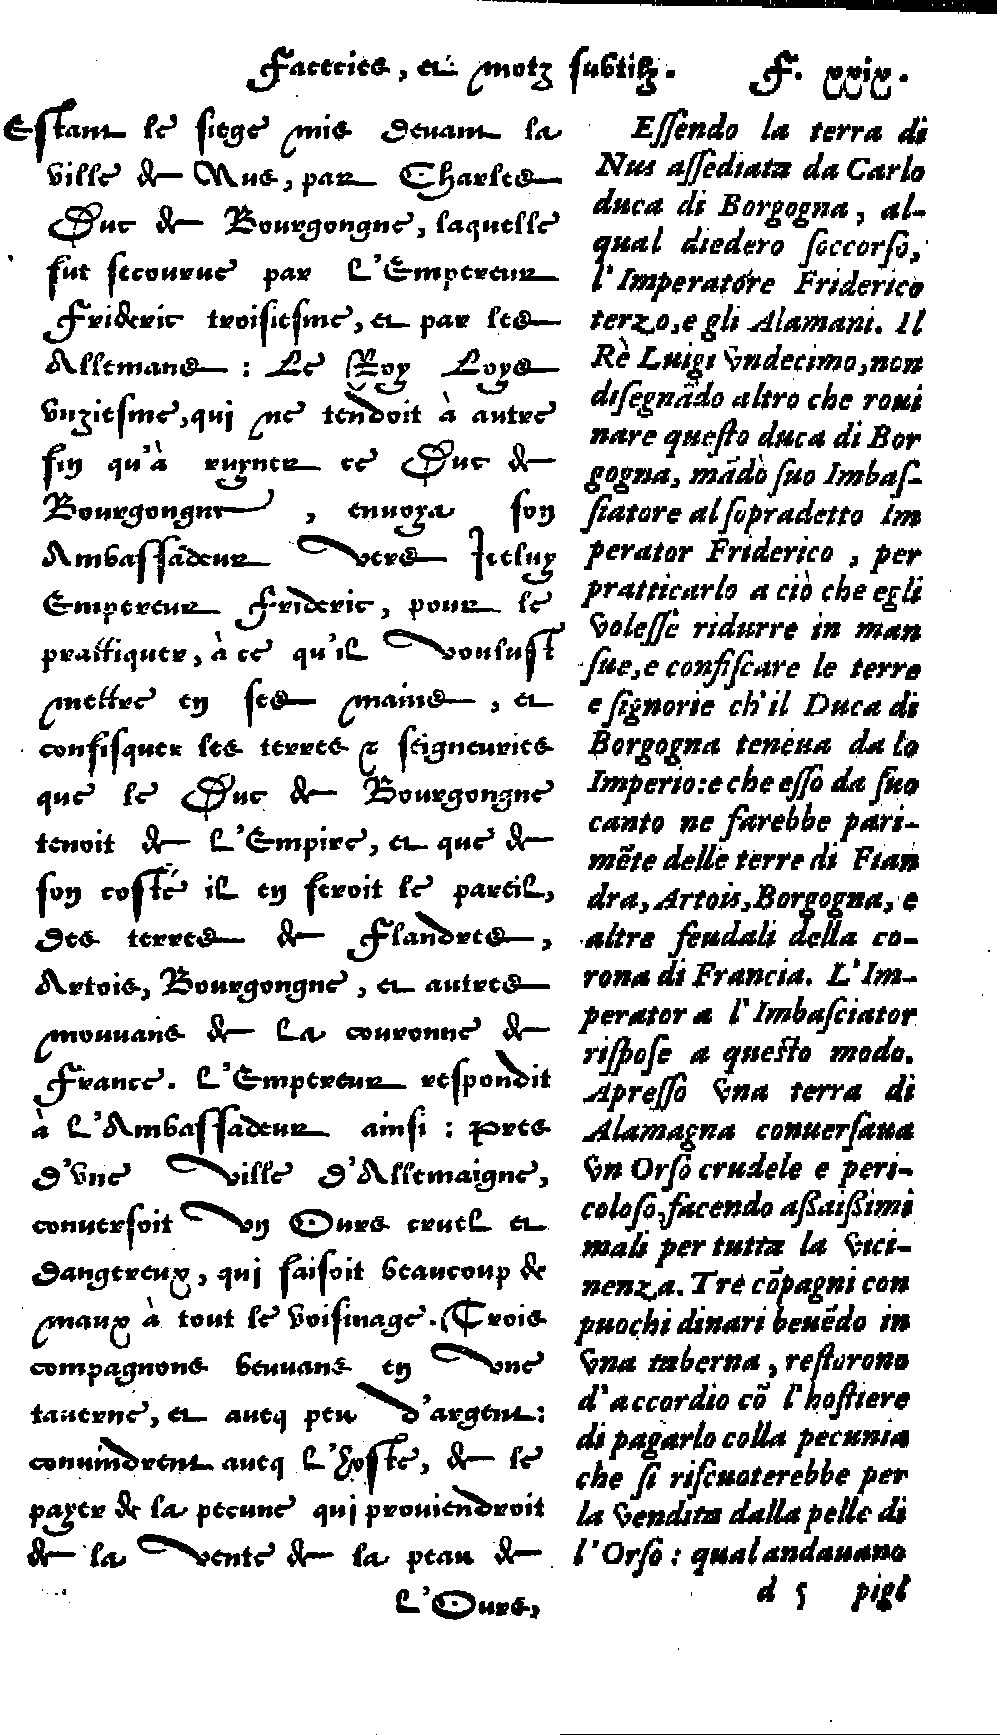 Faceties, et motz subtilz. F. xxix.
Estant le siege mis devant la
ville de Nus, par Charles
Duc de Bourgongne, laquelle
fut secourue par l'Empereur
Frideric troisiesme, et par les
Allemans : Le Roy Loys
vnziesme, qui ne tendoit à autre
fin qu'à ruyner ce Duc de
Bourgongne , envoya son
Ambassadeur vers Iceluy
Empereur Frideric, pour le
prattiquer, à ce qu'il voulust
mettre en ses mains , et
confisquer les terres & seigneuries
que le Duc de Bourgongne
tenoit de l'Empire, et que de
son costé il en feroit le pareil,
des terres de Flandres,
Artois, Bourgongne, et autres
mouuans de la couronne de
France. L'Empereur respondit
à l'Ambassadeur ainsi : pres
d'vne ville d'Allemaigne,
conversoit vn Ours cruel et
dangereux, qui faisoit beaucoup de
maux à tout le voisinage. Trois
compagnons beuuans en vne
taverne, et aveq peu d'argent:
convindrent aveq l'hoste, de le
payer de la pecune qui proviendroit
de la vente de la peau de
l'Ours,
Essendo la terra di
Nus assediata da Carlo
duca di Borgogna, al-
qual diedero soccorso,
l'Imperatore Friderico
terzo, e gli Alamani. Il
Rè Luigi vndecimo, non
disegnãdo altro che roui
nare questo duca di Bor
gogna, mãdò suo Imbas-
siatore al sopradetto Im
perator Friderico , per
pratticarlo a ciò che egli
volesse ridurre in man
sue, e confiscare le terre
e signorie ch'il Duca di
Borgogna teneua da lo
Imperio: e che esso da suo
canto ne farebbe pari-
mẽte delle terre di Fian
dra, Artois, Borgogna, e
altre feudali della co-
rona di Francia. L'Im-
perator a l'Imbasciator
rispose a questo modo.
Apresso vna terra di
Alamagna conuersaua
vn Orso crudele e peri-
coloso, facendo assaissimi
mali per tutta la vici-
nenza. Tre cõpagni con
puochi dinari beuẽdo in
vna taberna, restorono
d'accordio cõ l'hostiere
di pagarlo colla pecunia
che si riscuoterebbe per
la vendita dalla pelle di
l'Orso : qual andauano
d 5 pigl